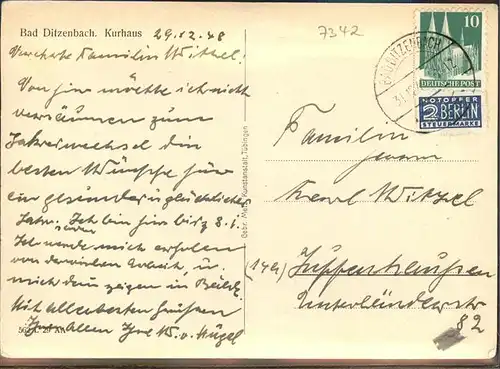 Bad Ditzenbach. Kurhaus 29.12.48
Verehrte Familie Witzel.
Von hier möchte ich nicht
versäumen zum
Jahreswechsel die
besten Wünsche für
ein gesundes u. glückliches
Jahr. Ich bin hier bis 8.1.
Ich werde mich erholen
von der vielen Arbeit, u.
mich dann zeigen im
Mit allerbesten Grüßen
Ihnen Allen Ihre W. v. Hügel
Gebr. Metz, Kunstanstalt, Tübingen
7342
BAD DITZENBACH
10
DEUTSCHE POST
NOTOPFER
2 BERLIN
STEUERMARKE
Familie
Herrn
Karl Witzel
(14a) Zuffenhausen
Unterländerstr
82